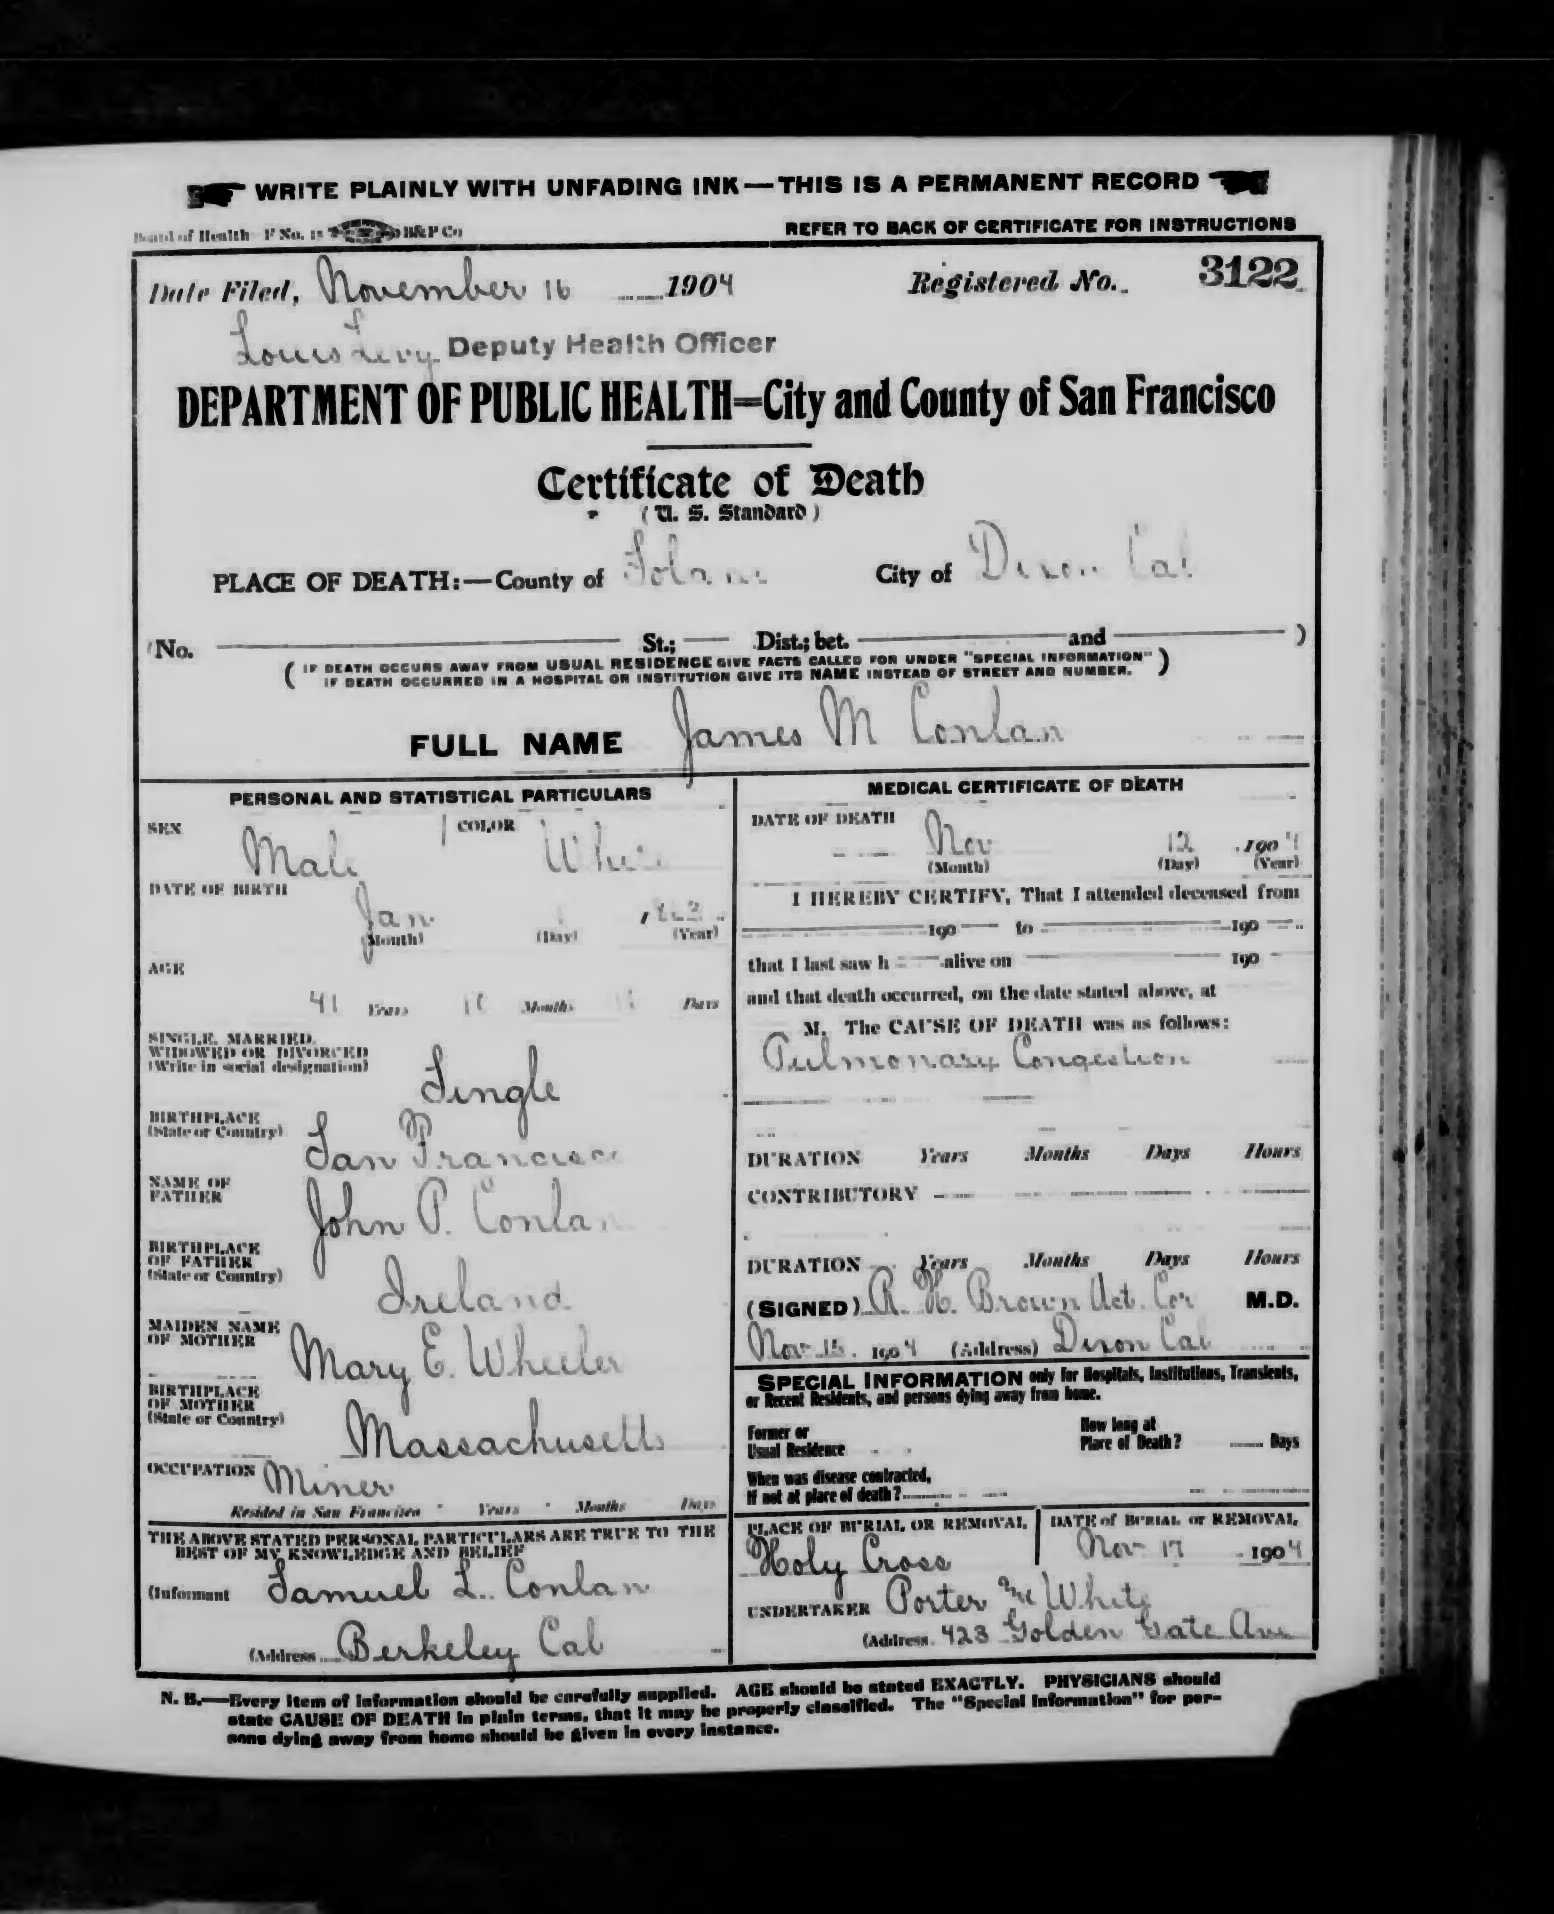 WRITE PLAINLY WITH UNFADING INK—THIS IS A PERMANENT RECORD
Board of Health F No. 15 B&P Co
REFER TO BACK OF CERTIFICATE FOR INSTRUCTIONS
Date Filed, November 16 1904 Registered No. 3122
Louis Levy Deputy Health Officer
DEPARTMENT OF PUBLIC HEALTH=City and County of San Francisco
Certificate of Death
(U. S. Standard)
PLACE OF DEATH:—County of Solano City of Dixon Cal
(No. St.; Dist.; bet. and )
( IF DEATH OCCURS AWAY FROM USUAL RESIDENCE GIVE FACTS CALLED FOR UNDER "SPECIAL INFORMATION" )
IF DEATH OCCURRED IN A HOSPITAL OR INSTITUTION GIVE ITS NAME INSTEAD OF STREET AND NUMBER.
FULL NAME James M Conlan
PERSONAL AND STATISTICAL PARTICULARS
SEX Male COLOR White
DATE OF BIRTH
Jan
(Month) (Day) (Year)
AGE
41 Years 10 Months Days
SINGLE, MARRIED,
WIDOWED OR DIVORCED
(Write in social designation)
Single
BIRTHPLACE
(State or Country)
San Francisco
NAME OF
FATHER
John P. Conlan
BIRTHPLACE
OF FATHER
(State or Country)
Ireland
MAIDEN NAME
OF MOTHER
Mary E. Wheeler
BIRTHPLACE
OF MOTHER
(State or Country)
Massachusetts
OCCUPATION Miner
Resided in San Francisco Years Months Days
THE ABOVE STATED PERSONAL PARTICULARS ARE TRUE TO THE
BEST OF MY KNOWLEDGE AND BELIEF
(Informant Samuel L. Conlan
(Address Berkeley Cal
MEDICAL CERTIFICATE OF DEATH
DATE OF DEATH
Nov 12 1904
(Month) (Day) (Year)
I HEREBY CERTIFY, That I attended deceased from
190 to 190
that I last saw h alive on 190
and that death occurred, on the date stated above, at
M. The CAUSE OF DEATH was as follows:
Pulmonary Congestion
DURATION Years Months Days Hours
CONTRIBUTORY
DURATION Years Months Days Hours
(SIGNED) R. H. Brown Act. Cor M.D.
Nov 15. 1904 (Address) Dixon Cal
SPECIAL INFORMATION only for Hospitals, Institutions, Transients,
or Recent Residents, and persons dying away from home.
Former or
Usual Residence
How long at
Place of Death? Days
When was disease contracted,
If not at place of death?
PLACE OF BURIAL OR REMOVAL
Holy Cross
DATE of BURIAL or REMOVAL
Nov 17 1904
UNDERTAKER Porter & White
(Address 423 Golden Gate Ave
N. B.—Every item of information should be carefully supplied. AGE should be stated EXACTLY. PHYSICIANS should
state CAUSE OF DEATH in plain terms, that it may be properly classified. The "Special Information" for per-
sons dying away from home should be given in every instance.